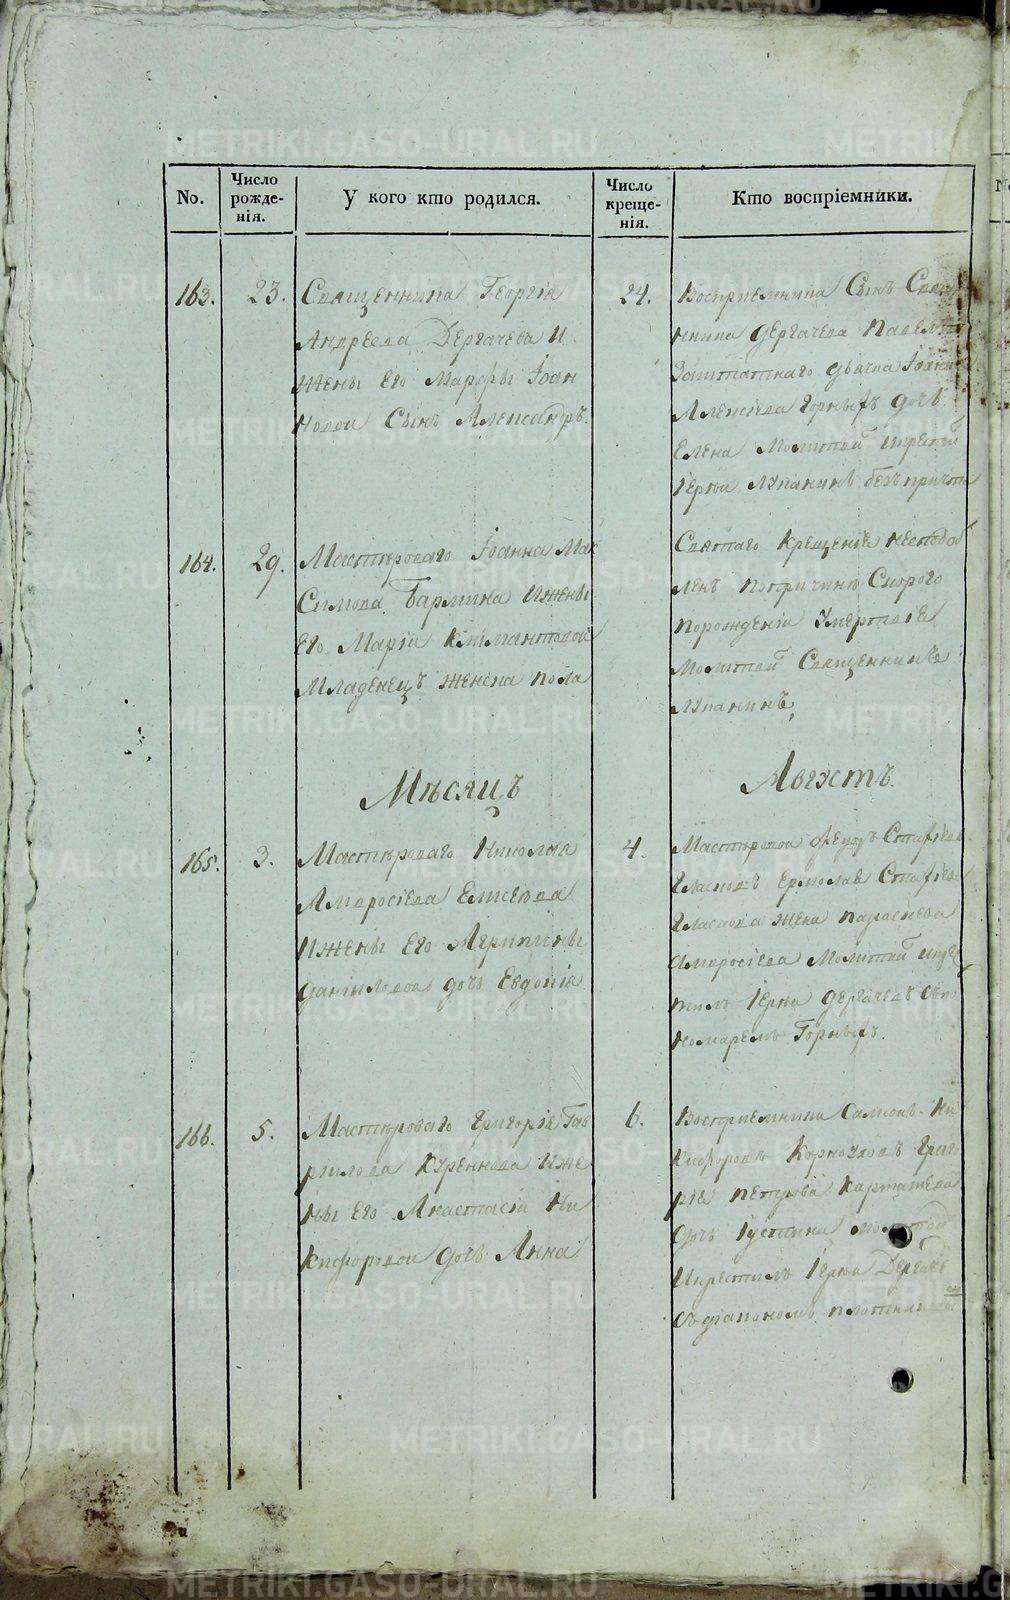 No.
Число рожде-
нія.
У кого кто родился.
Число креще-
нія.
Кто воспріемники.
163.
23.
Священника Георгія
Андреева Дергачева и
жены его Марфы Іоан
новой Сынъ Александръ.
24.
Восприемники Сынъ Свящ
нника Дергачева Павелъ
Заштатнаго дьячка Іоанна
Алексіева Горныхъ дочь
Елена Молитвой
Іерѣи Лупанинъ безъ причта
164.
29.
Мастѣроваго Іоанна Мак
симова Бармина и жены
его Маріи
Младенецъ женска пола
Святаго Крещенія несподоб
ленъ попричинѣ Скорого
порожденіи Умертвіе
Молитвой Священникъ
Лупанинъ
Мѣсяцъ
Августъ.
165.
3.
Мастѣроваго Николая
Амвросіева Елисеева
и жены его Агрипины
Даніиловой дочь Евдокія
4.
Мастѣровой
Власовъ Ермолая
Власова жена
Амвросіева Молитвой
Іерѣи Дергачевъ
номаремъ Горныхъ.
166.
5.
Мастѣроваго Григорія Гав
ріилова Куренкова и же
ны его Анастасіи Ни
кифоровой дочь Анна
6.
Восприемники Самсонъ Ни
кифоровъ Корноуховъ Григо
рія Петрова Карташева
Дочь Іустина Молитвой
Икрестилъ Іерѣи
Съ діакономъ
METRIKI.GASO-URAL.RU